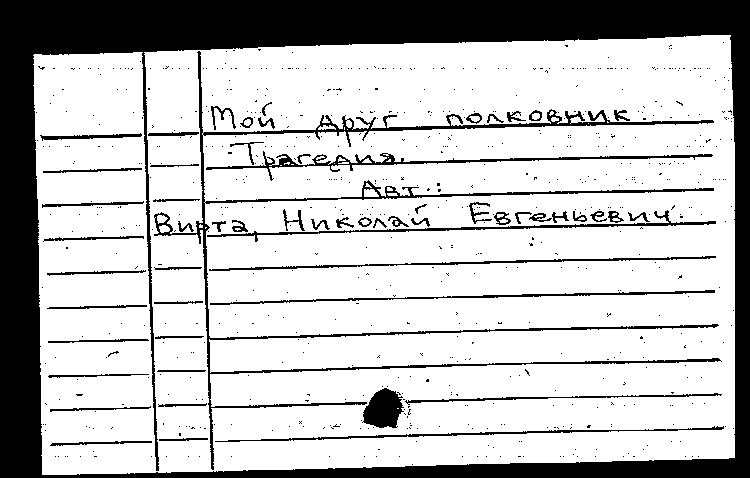 Мой друг полковник.
Трагедия.
Авт.:
Вирта, Николай Евгеньевич.